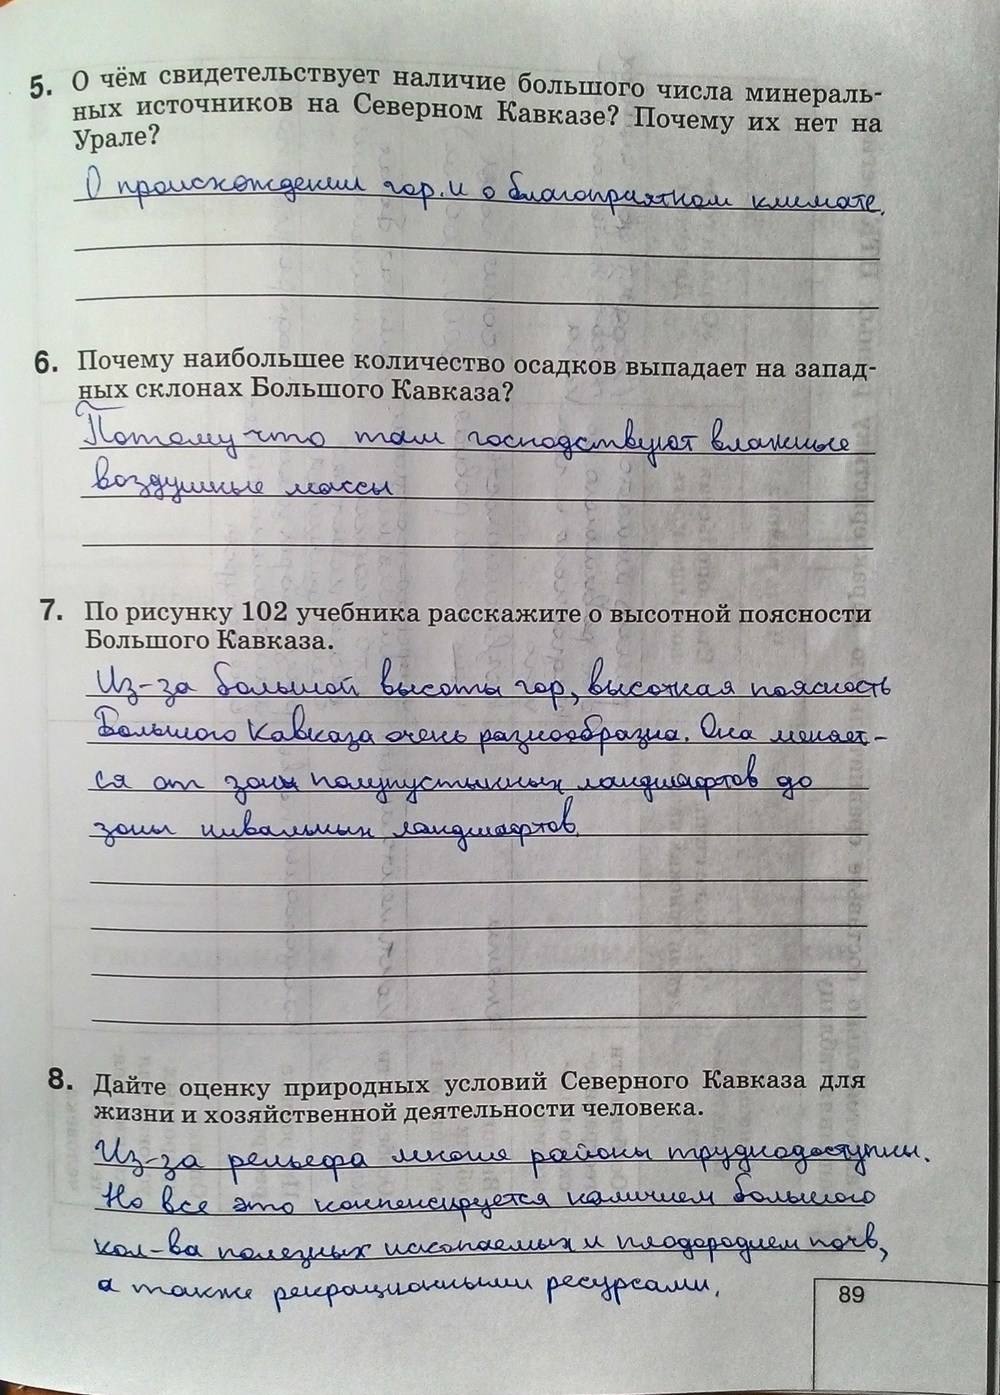 5. О чём свидетельствует наличие большого числа минераль-
ных источников на Северном Кавказе? Почему их нет на
Урале?
О происхождении гор. и о благоприятном климате.
6. Почему наибольшее количество осадков выпадает на запад-
ных склонах Большого Кавказа?
Потому что там господствуют влажные
воздушные массы
7. По рисунку 102 учебника расскажите о высотной поясности
Большого Кавказа.
Из-за большой высоты гор, высотная поясность
Большого Кавказа очень разнообразна. Она меняет-
ся от зоны полупустынных ландшафтов до
зоны нивальных ландшафтов.
8. Дайте оценку природных условий Северного Кавказа для
жизни и хозяйственной деятельности человека.
Из-за рельефа многие районы труднодоступны.
Но все это компенсируется наличием большого
кол-ва полезных ископаемых и плодородием почв,
а также рекрационными ресурсами.
89